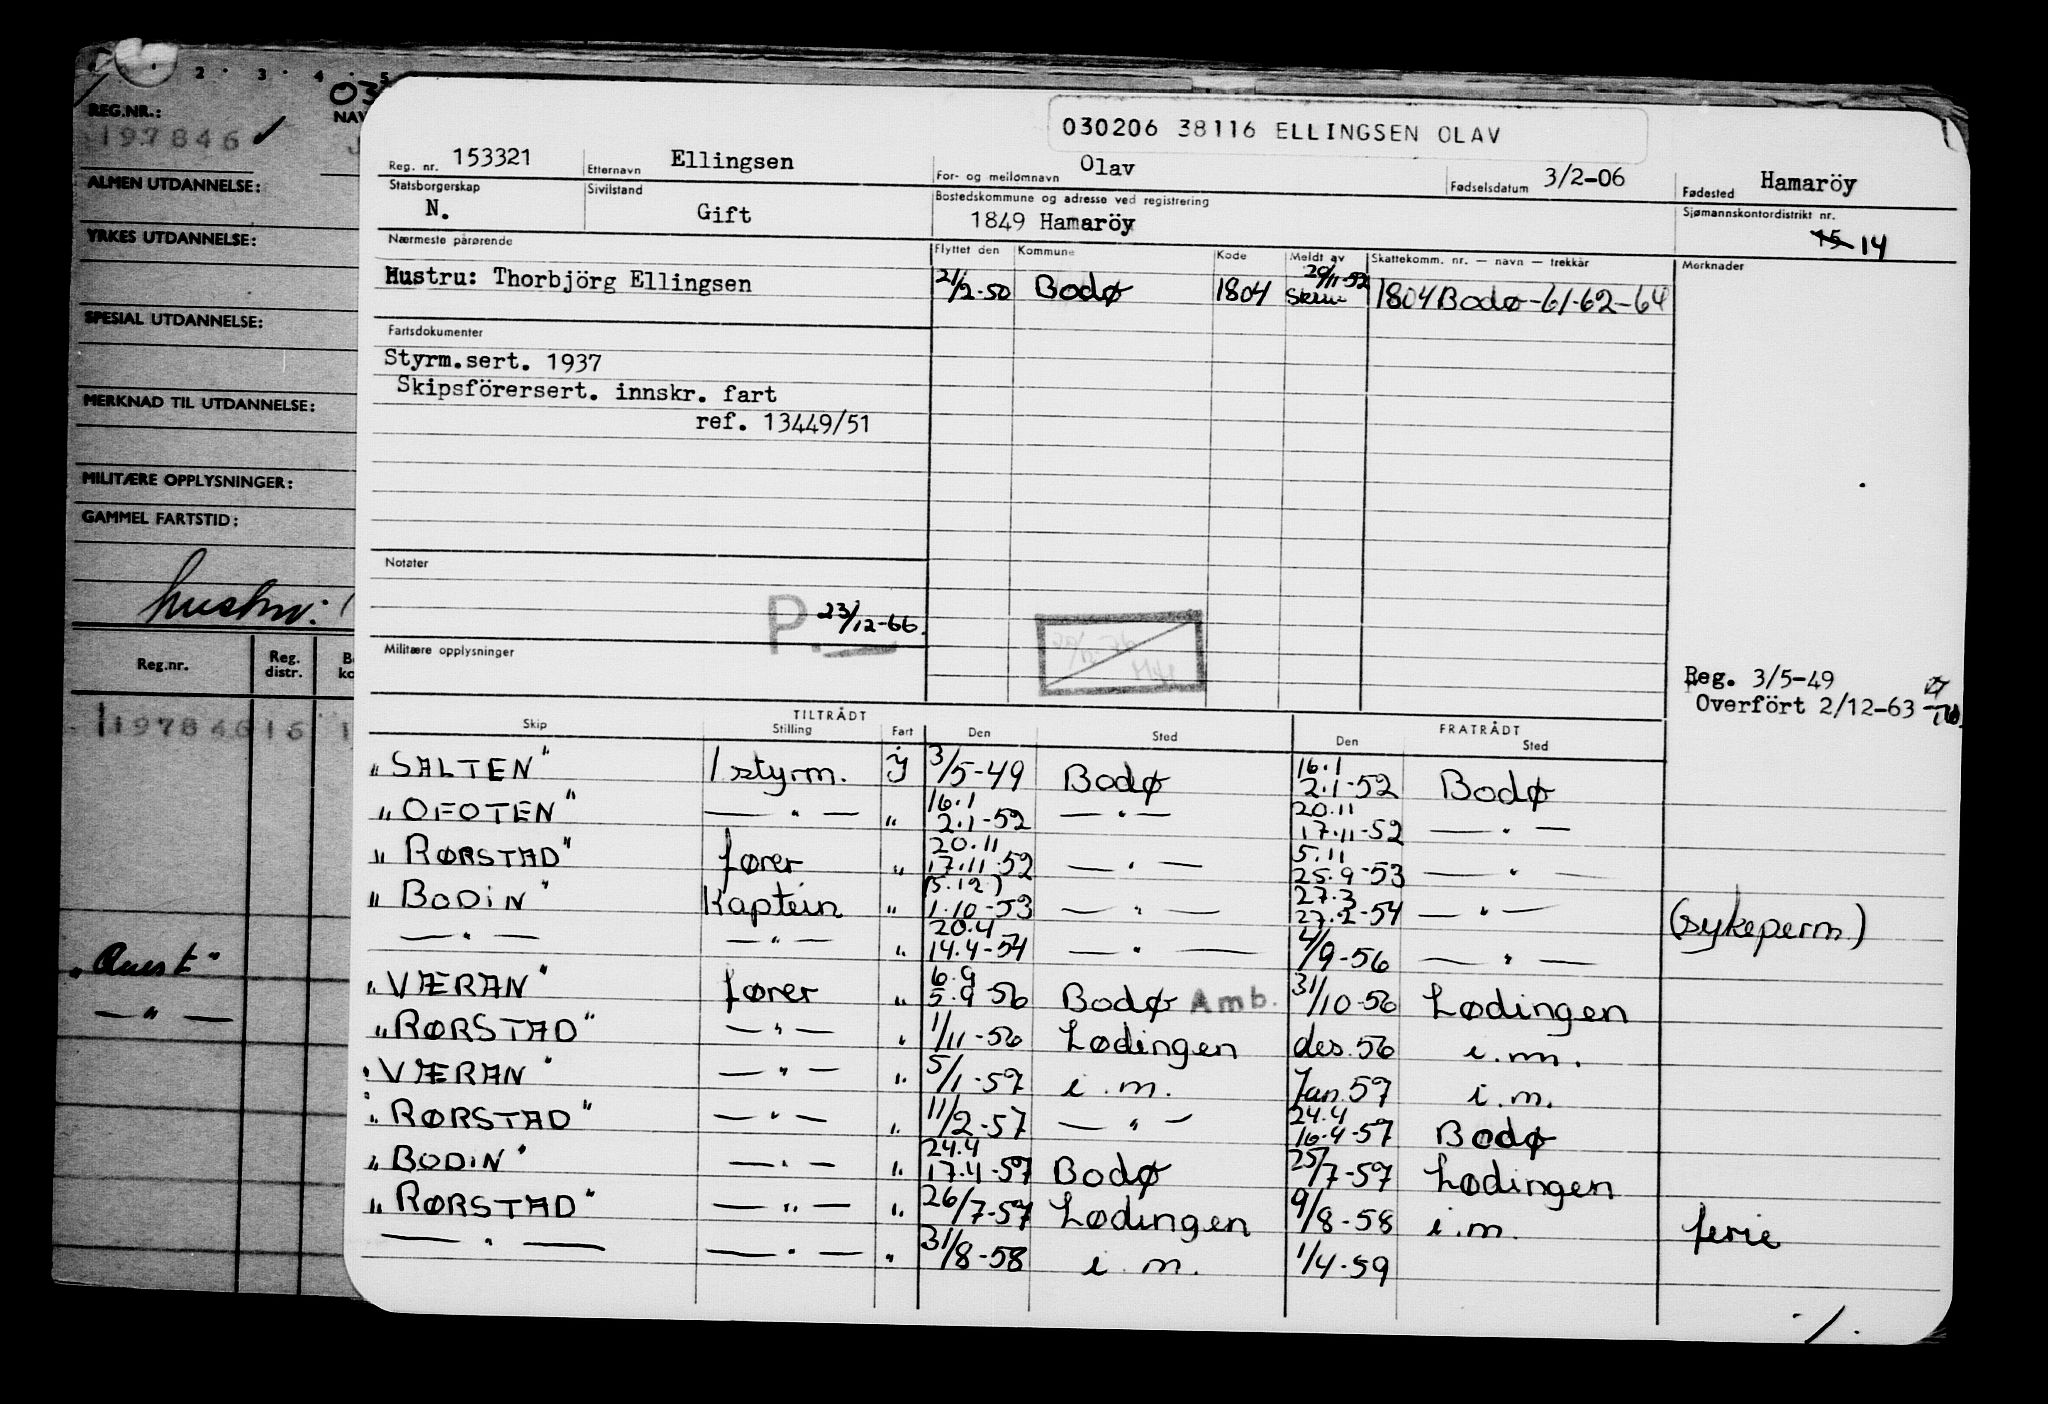 2 · 3 · 4 · 5
REG.NR.:
197846 ✓
ALMEN UTDANNELSE:
YRKES UTDANNELSE:
SPESIAL UTDANNELSE:
MERKNAD TIL UTDANNELSE:
MILITÆRE OPPLYSNINGER:
GAMMEL FARTSTID:
hustru:
Reg.nr. Reg. distr.
197846 15
030206 38116 ELLINGSEN OLAV
Reg. nr. 153321 Etternavn Ellingsen For- og mellomnavn Olav Fødselsdatum 3/2-06 Fødested Hamaröy
Statsborgerskap N. Sivilstand Gift Bostedskommune og adresse ved registrering 1849 Hamaröy Sjømannskontordistrikt nr. 15 14
Nærmeste pårørende Flyttet den Kommune Kode Meldt av Skattekomm. nr. — navn — trekkår Merknader
Hustru: Thorbjörg Ellingsen 21/2-50 Bodø 1804 20/11-52 1804 Bodø-61-62-64
Fartsdokumenter
Styrm.sert. 1937
Skipsförersert. innskr. fart
ref. 13449/51
Notater
P. 23/12-66.
Militære opplysninger
Reg. 3/5-49
Overfört 2/12-63
TILTRÅDT FRATRÅDT
Skip Stilling Fart Den Sted Den Sted
"SALTEN" 1 styrm. J 3/5-49 Bodø 16.1 2.1-52 Bodø
"OFOTEN" — " — " 16.1 2.1-52 — " — 20.11 17.11-52 — " —
"RØRSTAD" fører " 20.11 17.11-52 — " — 5.11 25.9-53 — " —
"BODIN" Kaptein " (5.12) 1.10-53 — " — 27.3 27.2-54 — " — (sykeperm)
— " — — " — " 20.4 14.4-54 — " — 4/9-56 — " —
"VÆRAN" fører " 6.9 5.9-56 Bodø Amb. 31/10-56 Lødingen
"RØRSTAD" — " — " 1/11-56 Lødingen des.56 i.m.
"VÆRAN" — " — " 5/1-57 i.m. Jan.57 i.m.
"RØRSTAD" — " — " 11/2-57 — " — 24.4 16.4-57 Bodø
"BODIN" — " — " 24.4 17.4-57 Bodø 25/7-57 Lødingen
"RØRSTAD" — " — " 26/7-57 Lødingen 9/8-58 i.m. ferie
— " — — " — " 31/8-58 i.m. 1/4-59